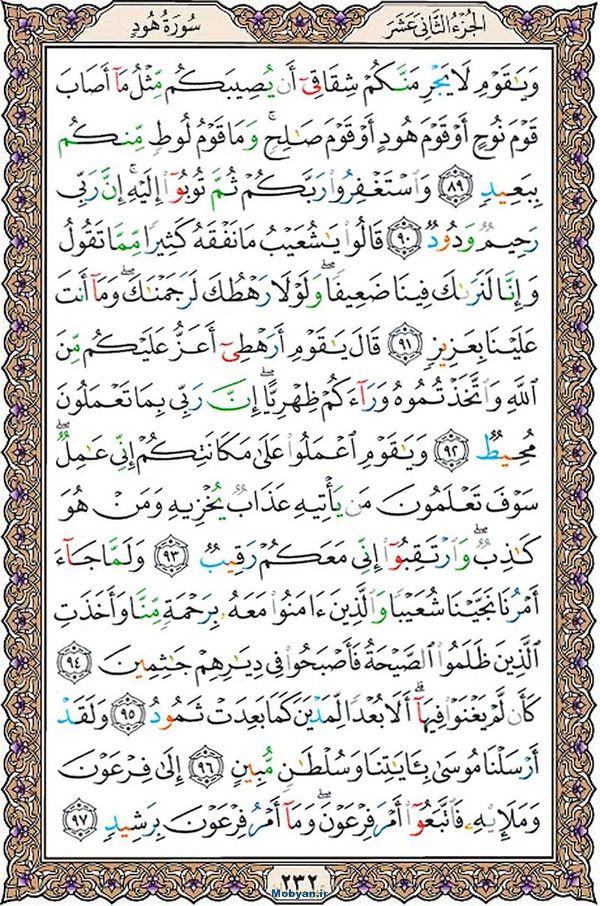 الجُزءُ الثَّانِي عَشَرَ سُورَةُ هُودٍ
وَيَٰقَوْمِ لَا يَجْرِمَنَّكُمْ شِقَاقِيٓ أَن يُصِيبَكُم مِّثْلُ مَآ أَصَابَ
قَوْمَ نُوحٍ أَوْ قَوْمَ هُودٍ أَوْ قَوْمَ صَٰلِحٍۚ وَمَا قَوْمُ لُوطٍ مِّنكُم
بِبَعِيدٍ ٨٩ وَٱسْتَغْفِرُوا۟ رَبَّكُمْ ثُمَّ تُوبُوٓا۟ إِلَيْهِۚ إِنَّ رَبِّي
رَحِيمٌ وَدُودٌ ٩٠ قَالُوا۟ يَٰشُعَيْبُ مَا نَفْقَهُ كَثِيرًا مِّمَّا تَقُولُ
وَإِنَّا لَنَرَىٰكَ فِينَا ضَعِيفًاۖ وَلَوْلَا رَهْطُكَ لَرَجَمْنَٰكَۖ وَمَآ أَنتَ
عَلَيْنَا بِعَزِيزٍ ٩١ قَالَ يَٰقَوْمِ أَرَهْطِيٓ أَعَزُّ عَلَيْكُم مِّنَ
ٱللَّهِ وَٱتَّخَذْتُمُوهُ وَرَآءَكُمْ ظِهْرِيًّاۖ إِنَّ رَبِّي بِمَا تَعْمَلُونَ
مُحِيطٌ ٩٢ وَيَٰقَوْمِ ٱعْمَلُوا۟ عَلَىٰ مَكَانَتِكُمْ إِنِّي عَٰمِلٌۖ
سَوْفَ تَعْلَمُونَ مَن يَأْتِيهِ عَذَابٌ يُخْزِيهِ وَمَنْ هُوَ
كَٰذِبٌۖ وَٱرْتَقِبُوٓا۟ إِنِّي مَعَكُمْ رَقِيبٌ ٩٣ وَلَمَّا جَآءَ
أَمْرُنَا نَجَّيْنَا شُعَيْبًا وَٱلَّذِينَ ءَامَنُوا۟ مَعَهُۥ بِرَحْمَةٍ مِّنَّا وَأَخَذَتِ
ٱلَّذِينَ ظَلَمُوا۟ ٱلصَّيْحَةُ فَأَصْبَحُوا۟ فِي دِيَٰرِهِمْ جَٰثِمِينَ ٩٤
كَأَن لَّمْ يَغْنَوْا۟ فِيهَآۗ أَلَا بُعْدًا لِّمَدْيَنَ كَمَا بَعِدَتْ ثَمُودُ ٩٥ وَلَقَدْ
أَرْسَلْنَا مُوسَىٰ بِـَٔايَٰتِنَا وَسُلْطَٰنٍ مُّبِينٍ ٩٦ إِلَىٰ فِرْعَوْنَ
وَمَلَإِي۟هِۦ فَٱتَّبَعُوٓا۟ أَمْرَ فِرْعَوْنَۖ وَمَآ أَمْرُ فِرْعَوْنَ بِرَشِيدٍ ٩٧
٢٣٢
Mobyan.ir